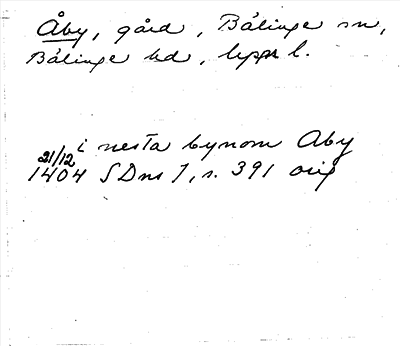 Åby, gård, Bälinge sn,
Bälinge hd, Uppl.
i nesta bynom Aby
21/12
1404 SDns 1, s. 391 orig